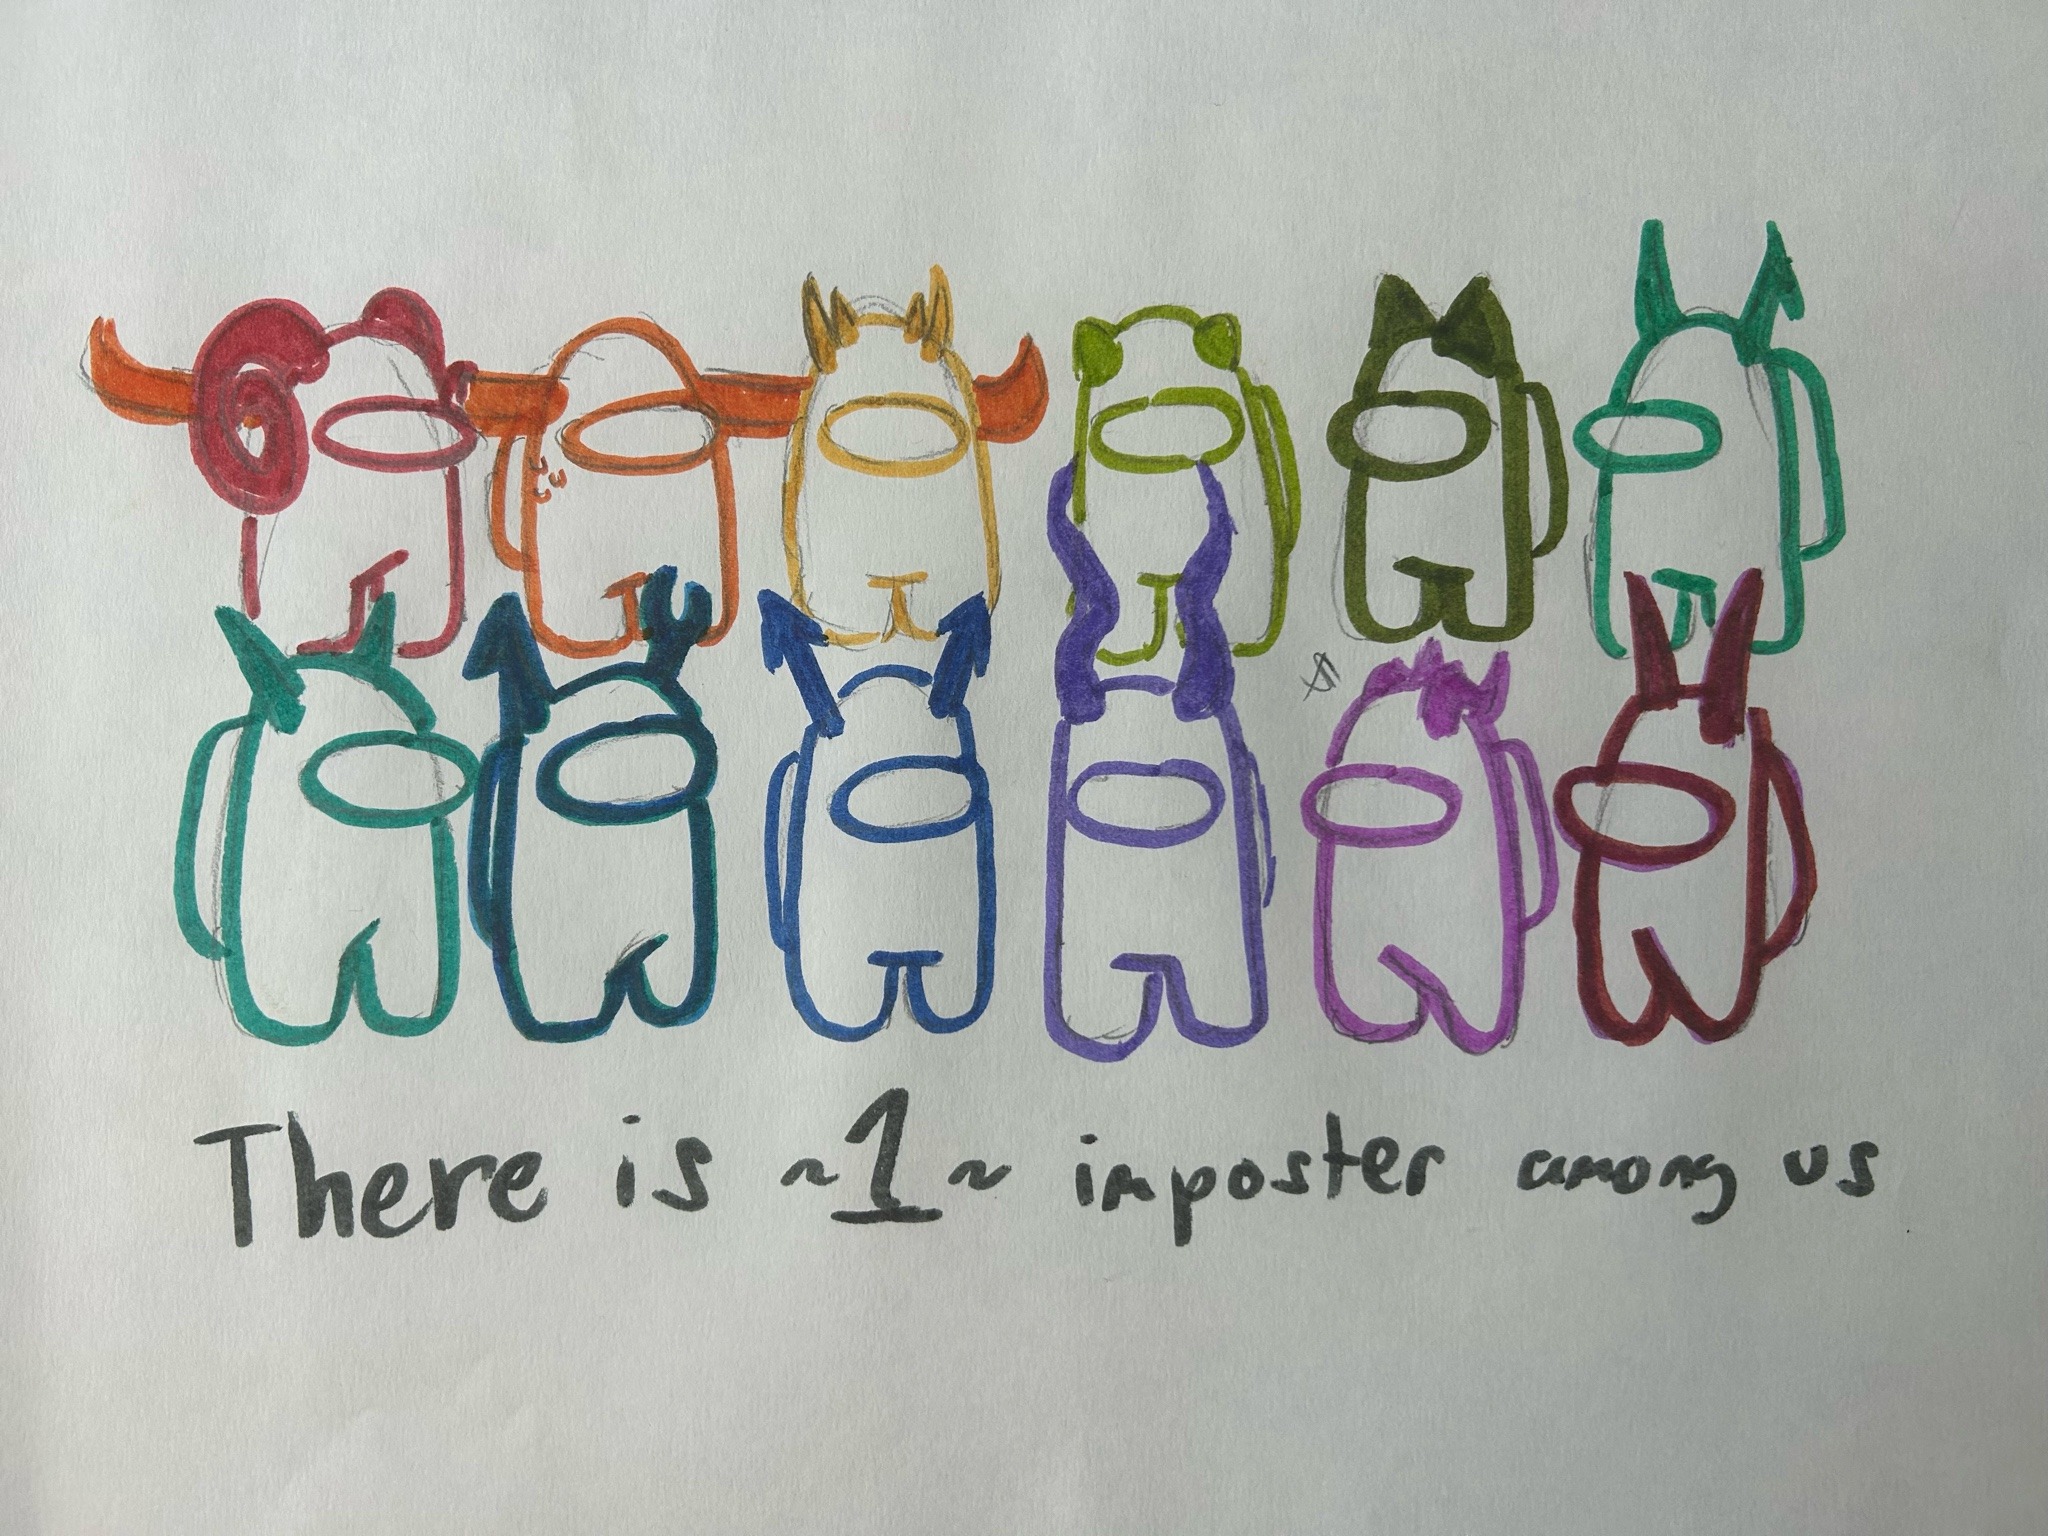 There is ~1~ imposter among us